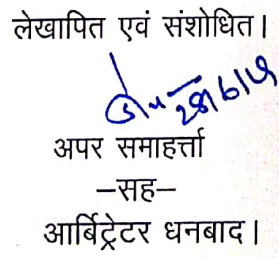 लेखापित एवं संशोधित।
अपर समाहर्त्ता
–सह–
आर्बिट्रेटर धनबाद।